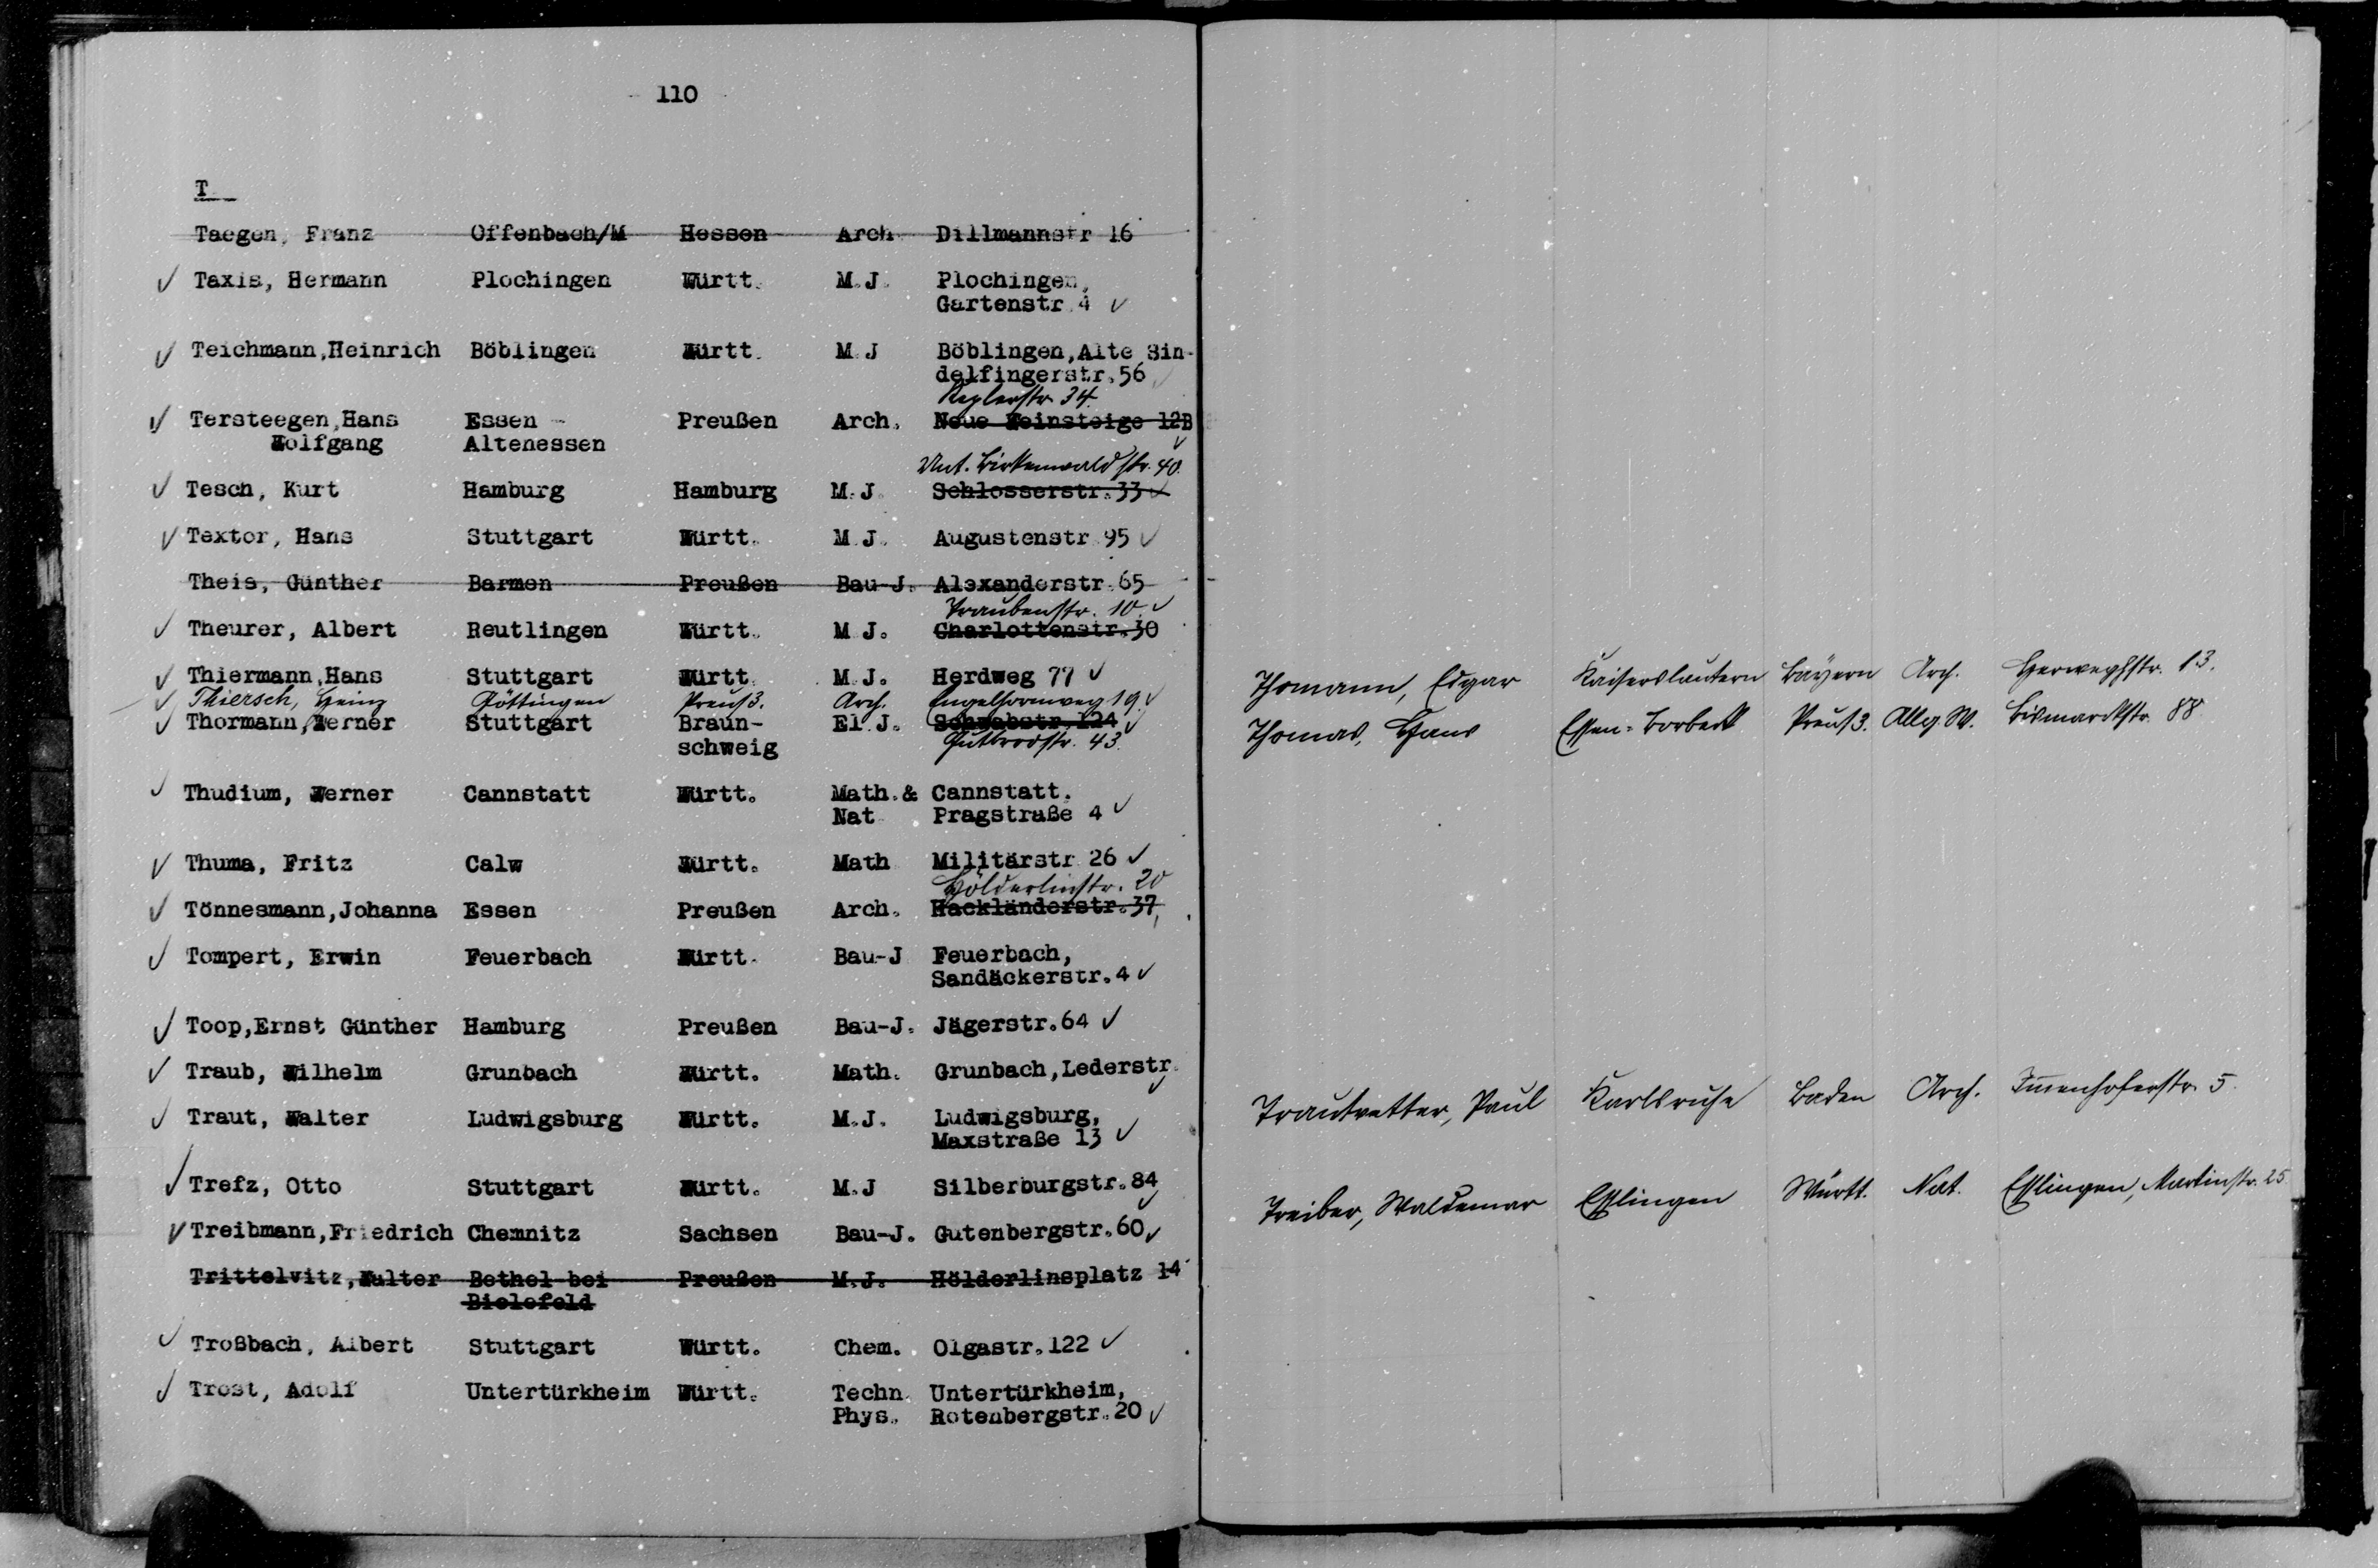 110
T
Taegen, Franz Offenbach/M Hessen Arch. Dillmannstr 16
Taxis, Hermann Plochingen Württ. M.J. Plochingen,
Gartenstr.4
Teichmann,Heinrich Böblingen Württ. M.J Böblingen,Alte Sin-
delfingerstr.56
Keplerstr. 34.
Tersteegen,Hans Essen - Preußen Arch. Neue Weinsteige 12B
Wolfgang Altenessen
Unt. Birkenwaldstr. 40.
Tesch, Kurt Hamburg Hamburg M.J. Schlosserstr.33
Textor, Hans Stuttgart Württ. M.J. Augustenstr.95
Theis, Günther Barmen Preußen Bau-J. Alexanderstr.65
Traubenstr. 10.
Theurer, Albert Reutlingen Württ. M.J. Charlottenstr.30
Thiermann,Hans Stuttgart Württ. M.J. Herdweg 77
Thiersch, Heinz Göttingen Preuß. Arch. Engelhornweg 19.
Thormann,Werner Stuttgart Braun- El.J. Schwabstr.124
schweig Gutbrodstr. 43.
Thudium, Werner Cannstatt Württ. Math.& Cannstatt.
Nat Pragstraße 4
Thuma, Fritz Calw Württ. Math Militärstr.26
Hölderlinstr. 20
Tönnesmann,Johanna Essen Preußen Arch. Hackländerstr.37,
Tompert, Erwin Feuerbach Württ. Bau-J Feuerbach,
Sandäckerstr.4
Toop,Ernst Günther Hamburg Preußen Bau-J. Jägerstr.64
Traub, Wilhelm Grunbach Württ. Math. Grunbach,Lederstr.
Traut, Walter Ludwigsburg Württ. M.J. Ludwigsburg,
Maxstraße 13
Trefz, Otto Stuttgart Württ. M.J Silberburgstr.84
Treibmann,Friedrich Chemnitz Sachsen Bau-J. Gutenbergstr.60
Trittelvitz,Walter Bethel bei Preußen M.J. Hölderlinsplatz 14
Bielefeld
Troßbach, Albert Stuttgart Württ. Chem. Olgastr.122
Trost, Adolf Untertürkheim Württ. Techn. Untertürkheim,
Phys. Rotenbergstr.20
Thomann, Edgar Kaiserslautern Bayern Arch. Herweghstr. 13.
Thomas, Hans Essen-Borbeck Preuß. Allg.W. Bismarckstr. 88.
Trautvetter, Paul Karlsruhe Baden Arch. Imenhoferstr. 5.
Treiber, Waldemar Esslingen Württ. Nat. Esslingen, Martinstr. 25